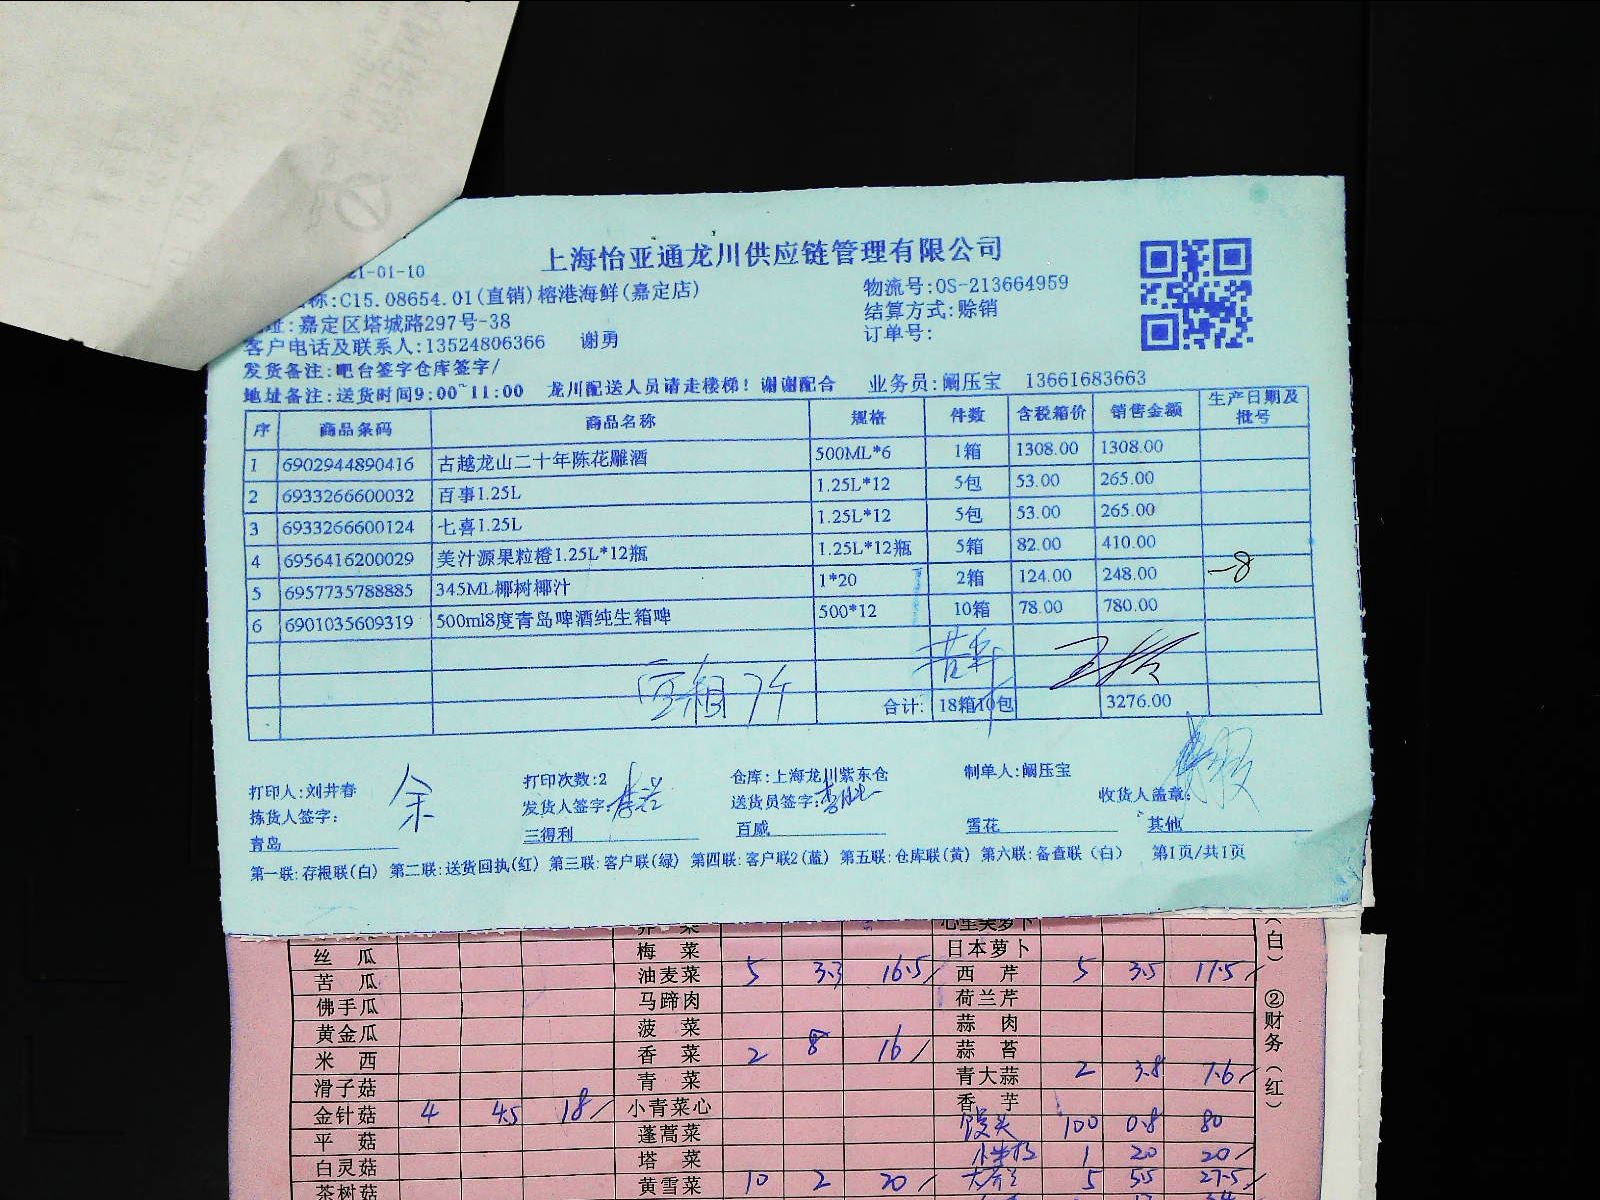 上海怡亚通龙川供应链管理有限公司
21-01-10
称:C15.08654.01(直销)榕港海鲜(嘉定店)
物流号:OS-213664959
址:嘉定区塔城路297号-38
结算方式:赊销
客户电话及联系人:13524806366 谢勇
订单号:
发货备注:吧台签字仓库签字/
地址备注:送货时间9:00~11:00 龙川配送人员请走楼梯!谢谢配合 业务员:阚压宝 13661683663
序 商品条码 商品名称 规格 件数 含税箱价 销售金额 生产日期及批号
1 6902944890416 古越龙山二十年陈花雕酒 500ML*6 1箱 1308.00 1308.00
2 6933266600032 百事1.25L 1.25L*12 5包 53.00 265.00
3 6933266600124 七喜1.25L 1.25L*12 5包 53.00 265.00
4 6956416200029 美汁源果粒橙1.25L*12瓶 1.25L*12瓶 5箱 82.00 410.00
5 6957735788885 345ML椰树椰汁 1*20 2箱 124.00 248.00 -8
6 6901035609319 500ml8度青岛啤酒纯生箱啤 500*12 10箱 78.00 780.00
合计: 18箱10包 3276.00
打印人:刘井春 打印次数:2 仓库:上海龙川紫东仓 制单人:阚压宝
拣货人签字: 余 发货人签字: 送货员签字: 收货人盖章:
青岛 三得利 百威 雪花 其他
第一联:存根联(白) 第二联:送货回执(红) 第三联:客户联(绿) 第四联:客户联2(蓝) 第五联:仓库联(黄) 第六联:备查联(白) 第1页/共1页
丝瓜 梅菜 日本萝卜
苦瓜 油麦菜 5 3.3 16.5 西芹 5 3.5 17.5
佛手瓜 马蹄肉 荷兰芹
黄金瓜 菠菜 蒜肉
米西 香菜 2 8 16 蒜苔
滑子菇 青菜 青大蒜 2 3.8 7.6
金针菇 4 4.5 18 小青菜心 香芋
平菇 蓬蒿菜 馒头 100 0.8 80
白灵菇 塔菜 1 20 20
茶树菇 黄雪菜 10 2 20 5 5.5 27.5
(白)
②财务(红)